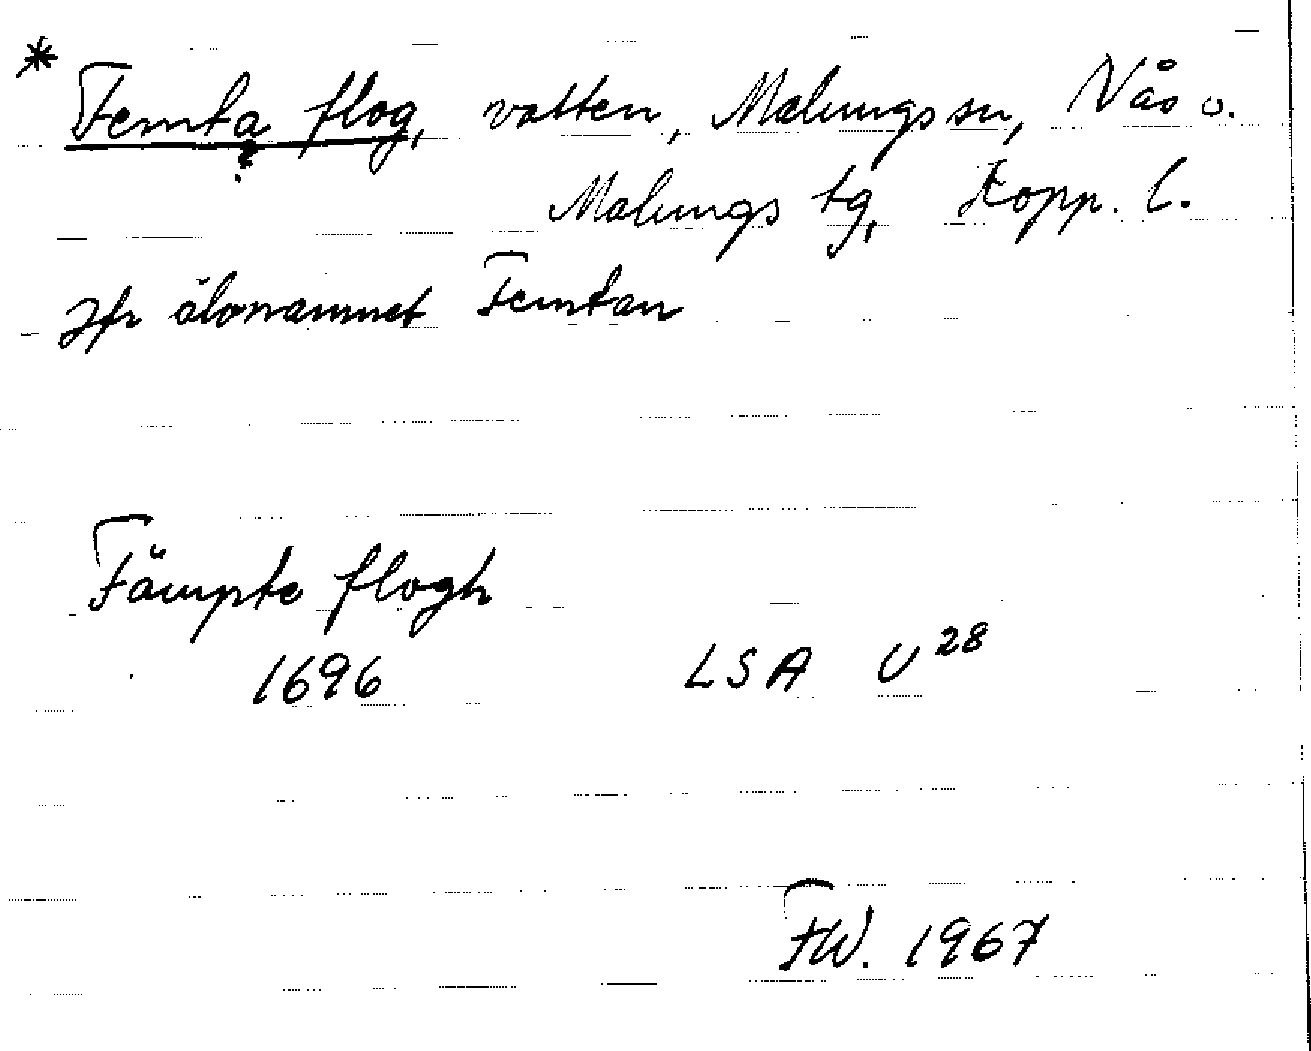 * Femta flog, vatten, Malungs sn, Nås o.
?
Malungs tg, Kopp. l.
Jfr älvnamnet Femtan
Fämpte flogh
1696 LSA U 28
FW. 1967